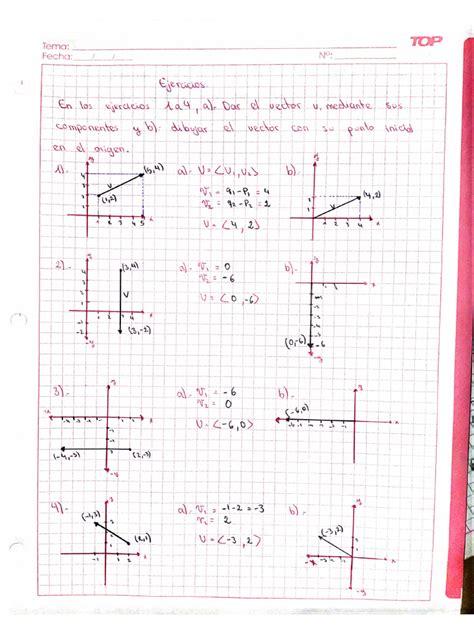 TOP
Tema:
Fecha: / /
Nº:
Ejercicios
En los ejercicios 1 a 4, a). Dar el vector v, mediante sus
componentes y b). dibujar el vector con su punto inicial
en el origen.
1).-
(5,4)
v
(1,2)
a).- V = <V₁, V₂>
V₁ = q₁ - P₁ = 4
V₂ = q₂ - P₂ = 2
V = <4, 2>
b).
(4,2)
2).-
(3,4)
v
(3,-2)
a).- V₁ = 0
V₂ = -6
V = <0, -6>
b).-
(0,-6)
-6
3).-
(-4,-3)
(2,-3)
a).- V₁ = -6
V₂ = 0
V = <-6, 0>
b).-
(-6,0)
4).-
(-1,3)
(2,1)
a).- V₁ = -1-2 = -3
V₂ = 2
V = <-3, 2>
b).-
(-3,2)